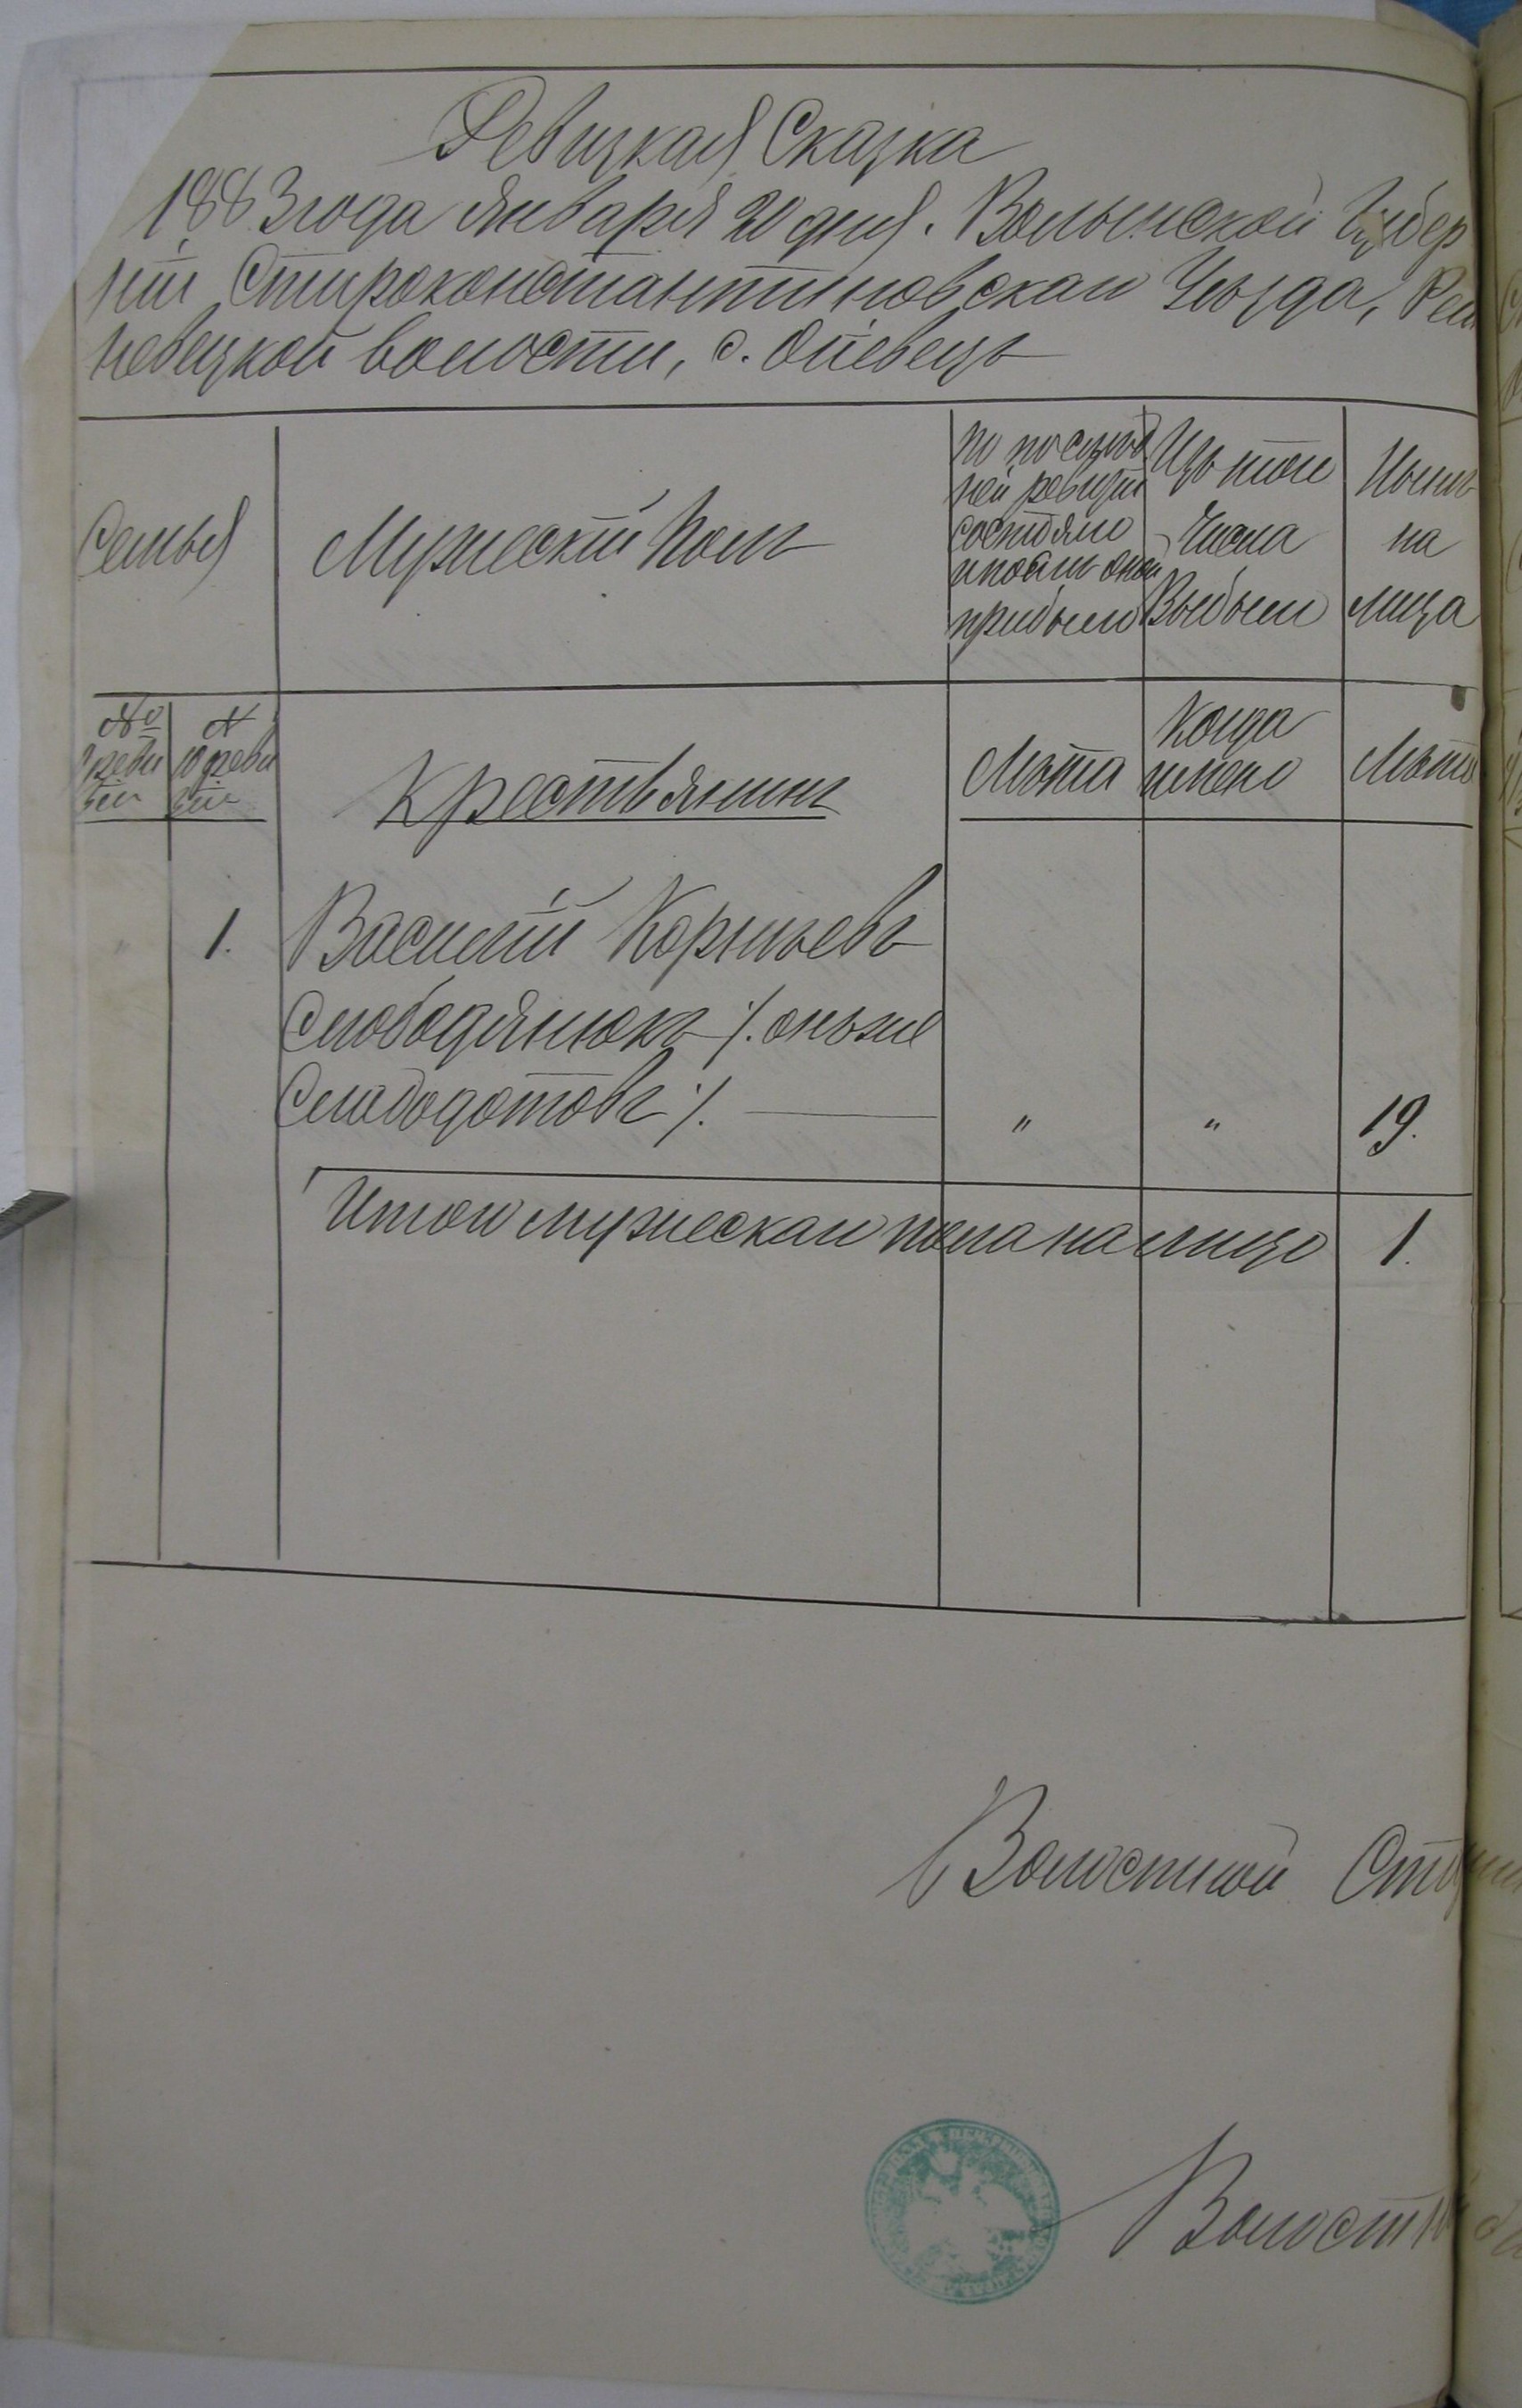 Ревизкая Сказка
1883 года Января 20 дня. Волынской Губер
ніи Староконстантиновскаго Уезда,
невецкой волости, с.
Семья
Мужескій Полъ
По послед
ней ревизіи
состояло
и после оной
прибыло
Изъ того
Числа
Выбыло
Ныне
на
лицо
№
9 реви
зіи
№
10 реви
зіи
Крестьянинъ
Лѣта
Когда
имено
Лѣта
1. Василій Корньевъ
Слободянюкъ /. онъ же
Слободотовъ /. — " " 19.
Итого мужескаго пола на лицо 1.
Волостной